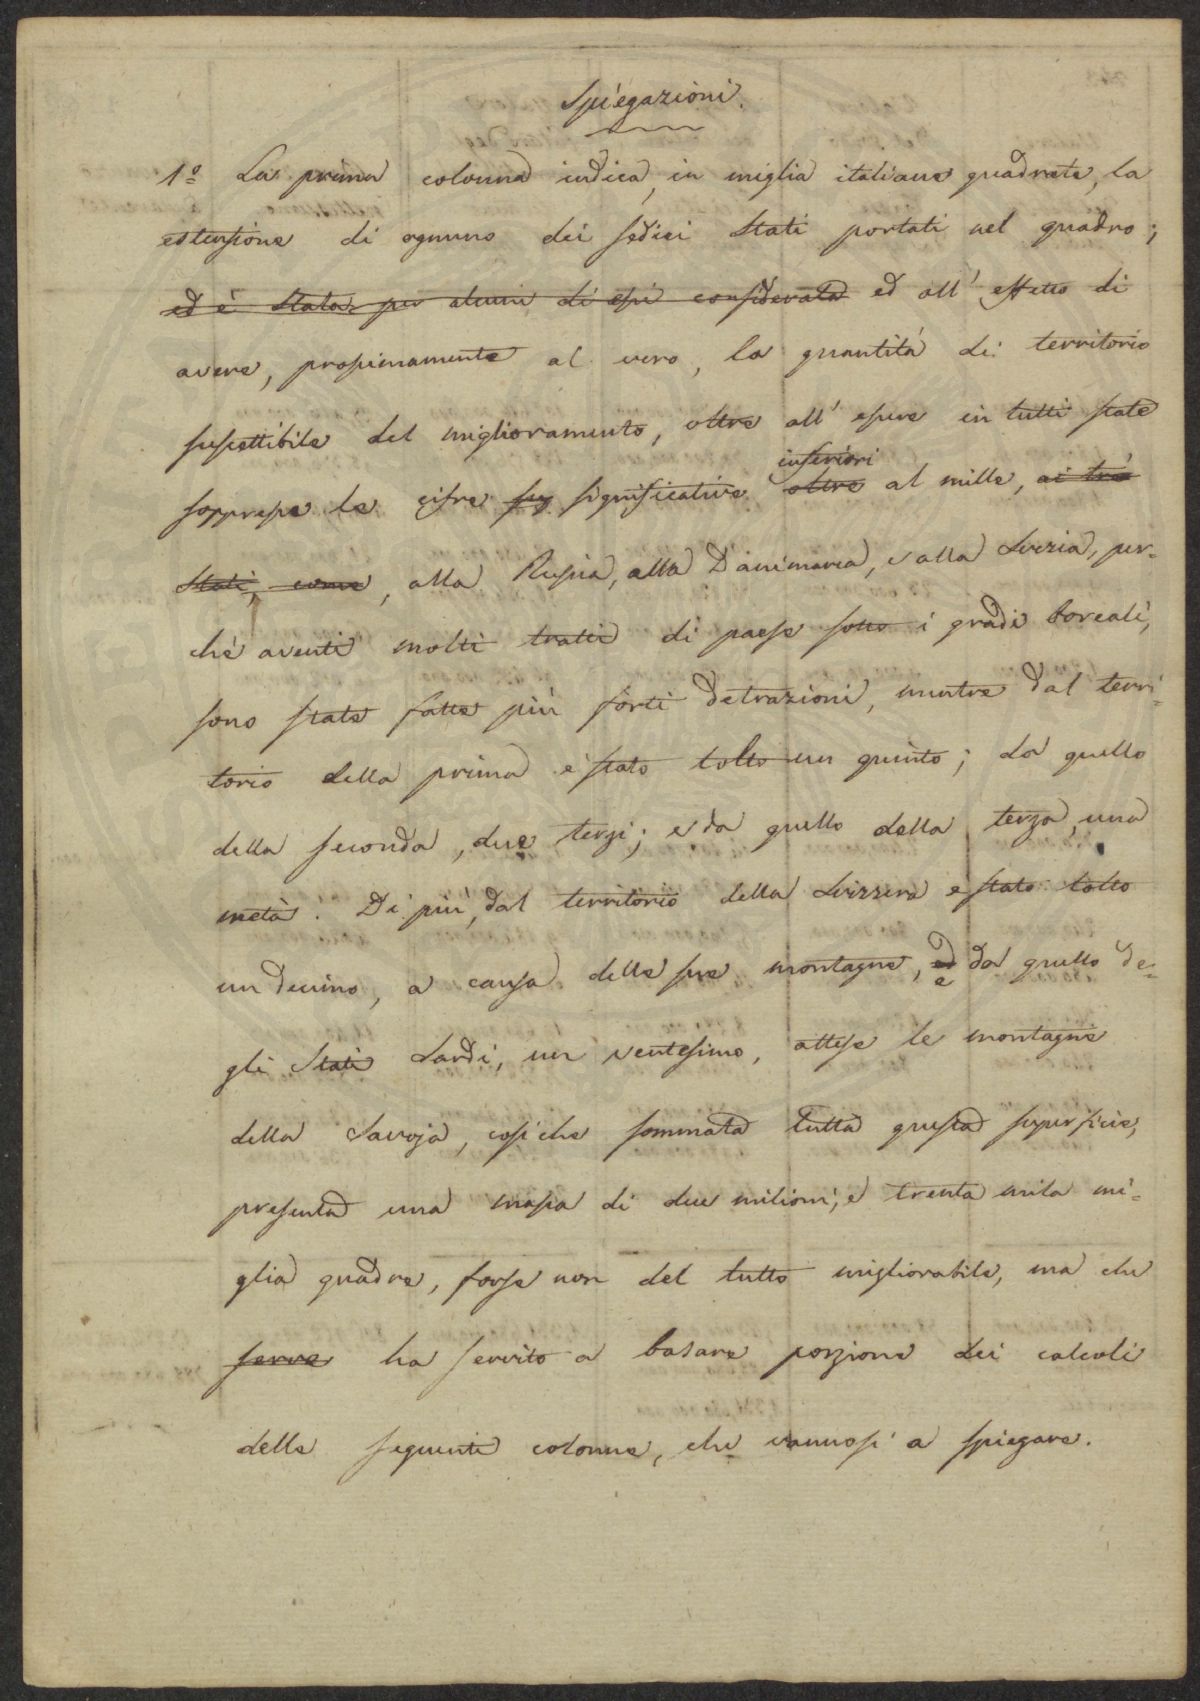 Spiegazioni.
1º La prima colonna indica, in miglia italiane quadrate, la
estensione di ognuno dei sedici Stati portati nel quadro;
ed è stata per alcuni di essi considerata ed all' effetto di
avere, prossimamente al vero, la quantità di territorio
suscettibile del miglioramento, oltre all' essere in tutti state
inferiori
soppresse le cifre sig significative oltre al mille, ai trè
Stati, come, alla Russia, alla Danimarca, e alla Svezia, per=
chè aventi molti tratti di paese sotto i gradi boreali,
sono state fatte più forti detrazioni, mentre dal terri=
torio della prima è stato tolto un quinto; da quello
della seconda, due terzi; e da quello della terza, una
metà. Di più, dal territorio della Svizzera e stato tolto
un decimo, a causa delle sue montagne, ed e da quello de=
gli Stati Sardi, un ventesimo, attese le montagne
della Savoja, cosi che sommata tutta questa superficie,
presenta una massa di due milioni, e trenta mila mi=
glia quadre, forse non del tutto migliorabile, ma che
serve ha servito a basare porzione dei calcoli
delle seguenti colonne, che vannosi a spiegare.